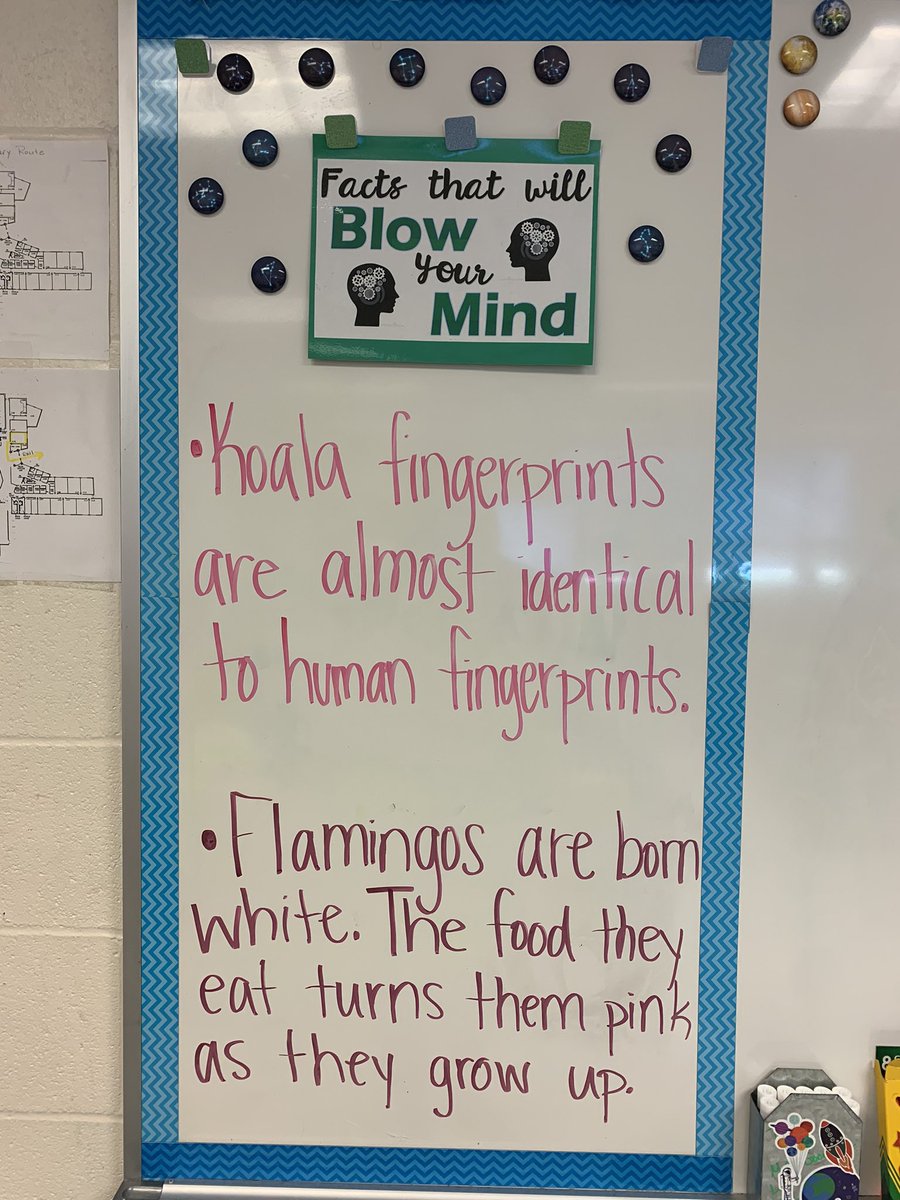 ary Route
Facts that will
Blow
your
Mind
• Koala fingerprints
are almost identical
to human fingerprints.
• Flamingos are born
white. The food they
eat turns them pink
as they grow up.